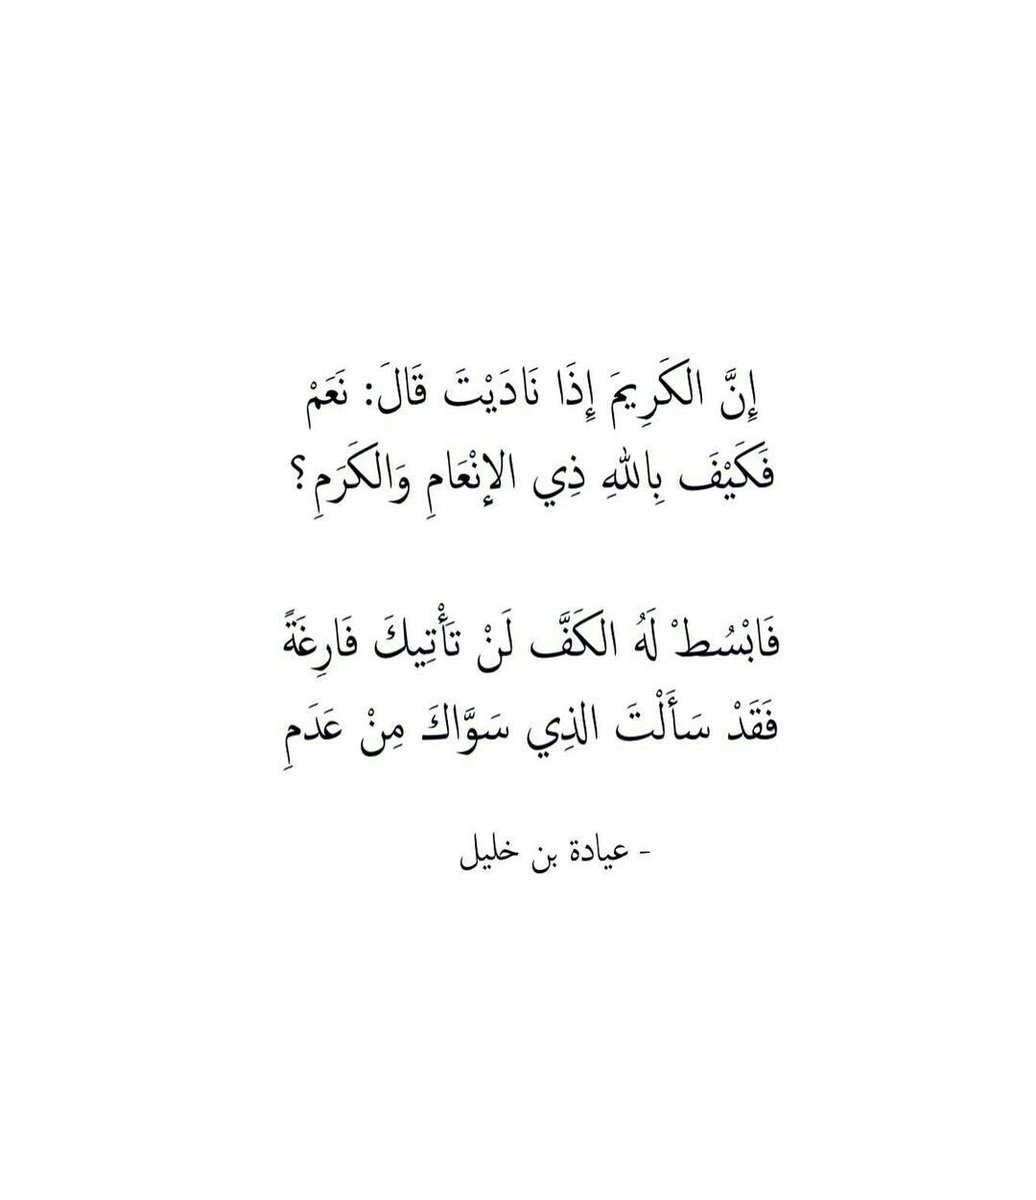 إِنَّ الكَرِيمَ إِذَا نَادَيْتَ قَالَ: نَعَمْ
فَكَيْفَ بِاللهِ ذِي الإِنْعَامِ وَالكَرَمِ؟
فَابْسُطْ لَهُ الكَفَّ لَنْ تَأْتِيكَ فَارِغَةً
فَقَدْ سَأَلْتَ الذِي سَوَّاكَ مِنْ عَدَمِ
- عيادة بن خليل